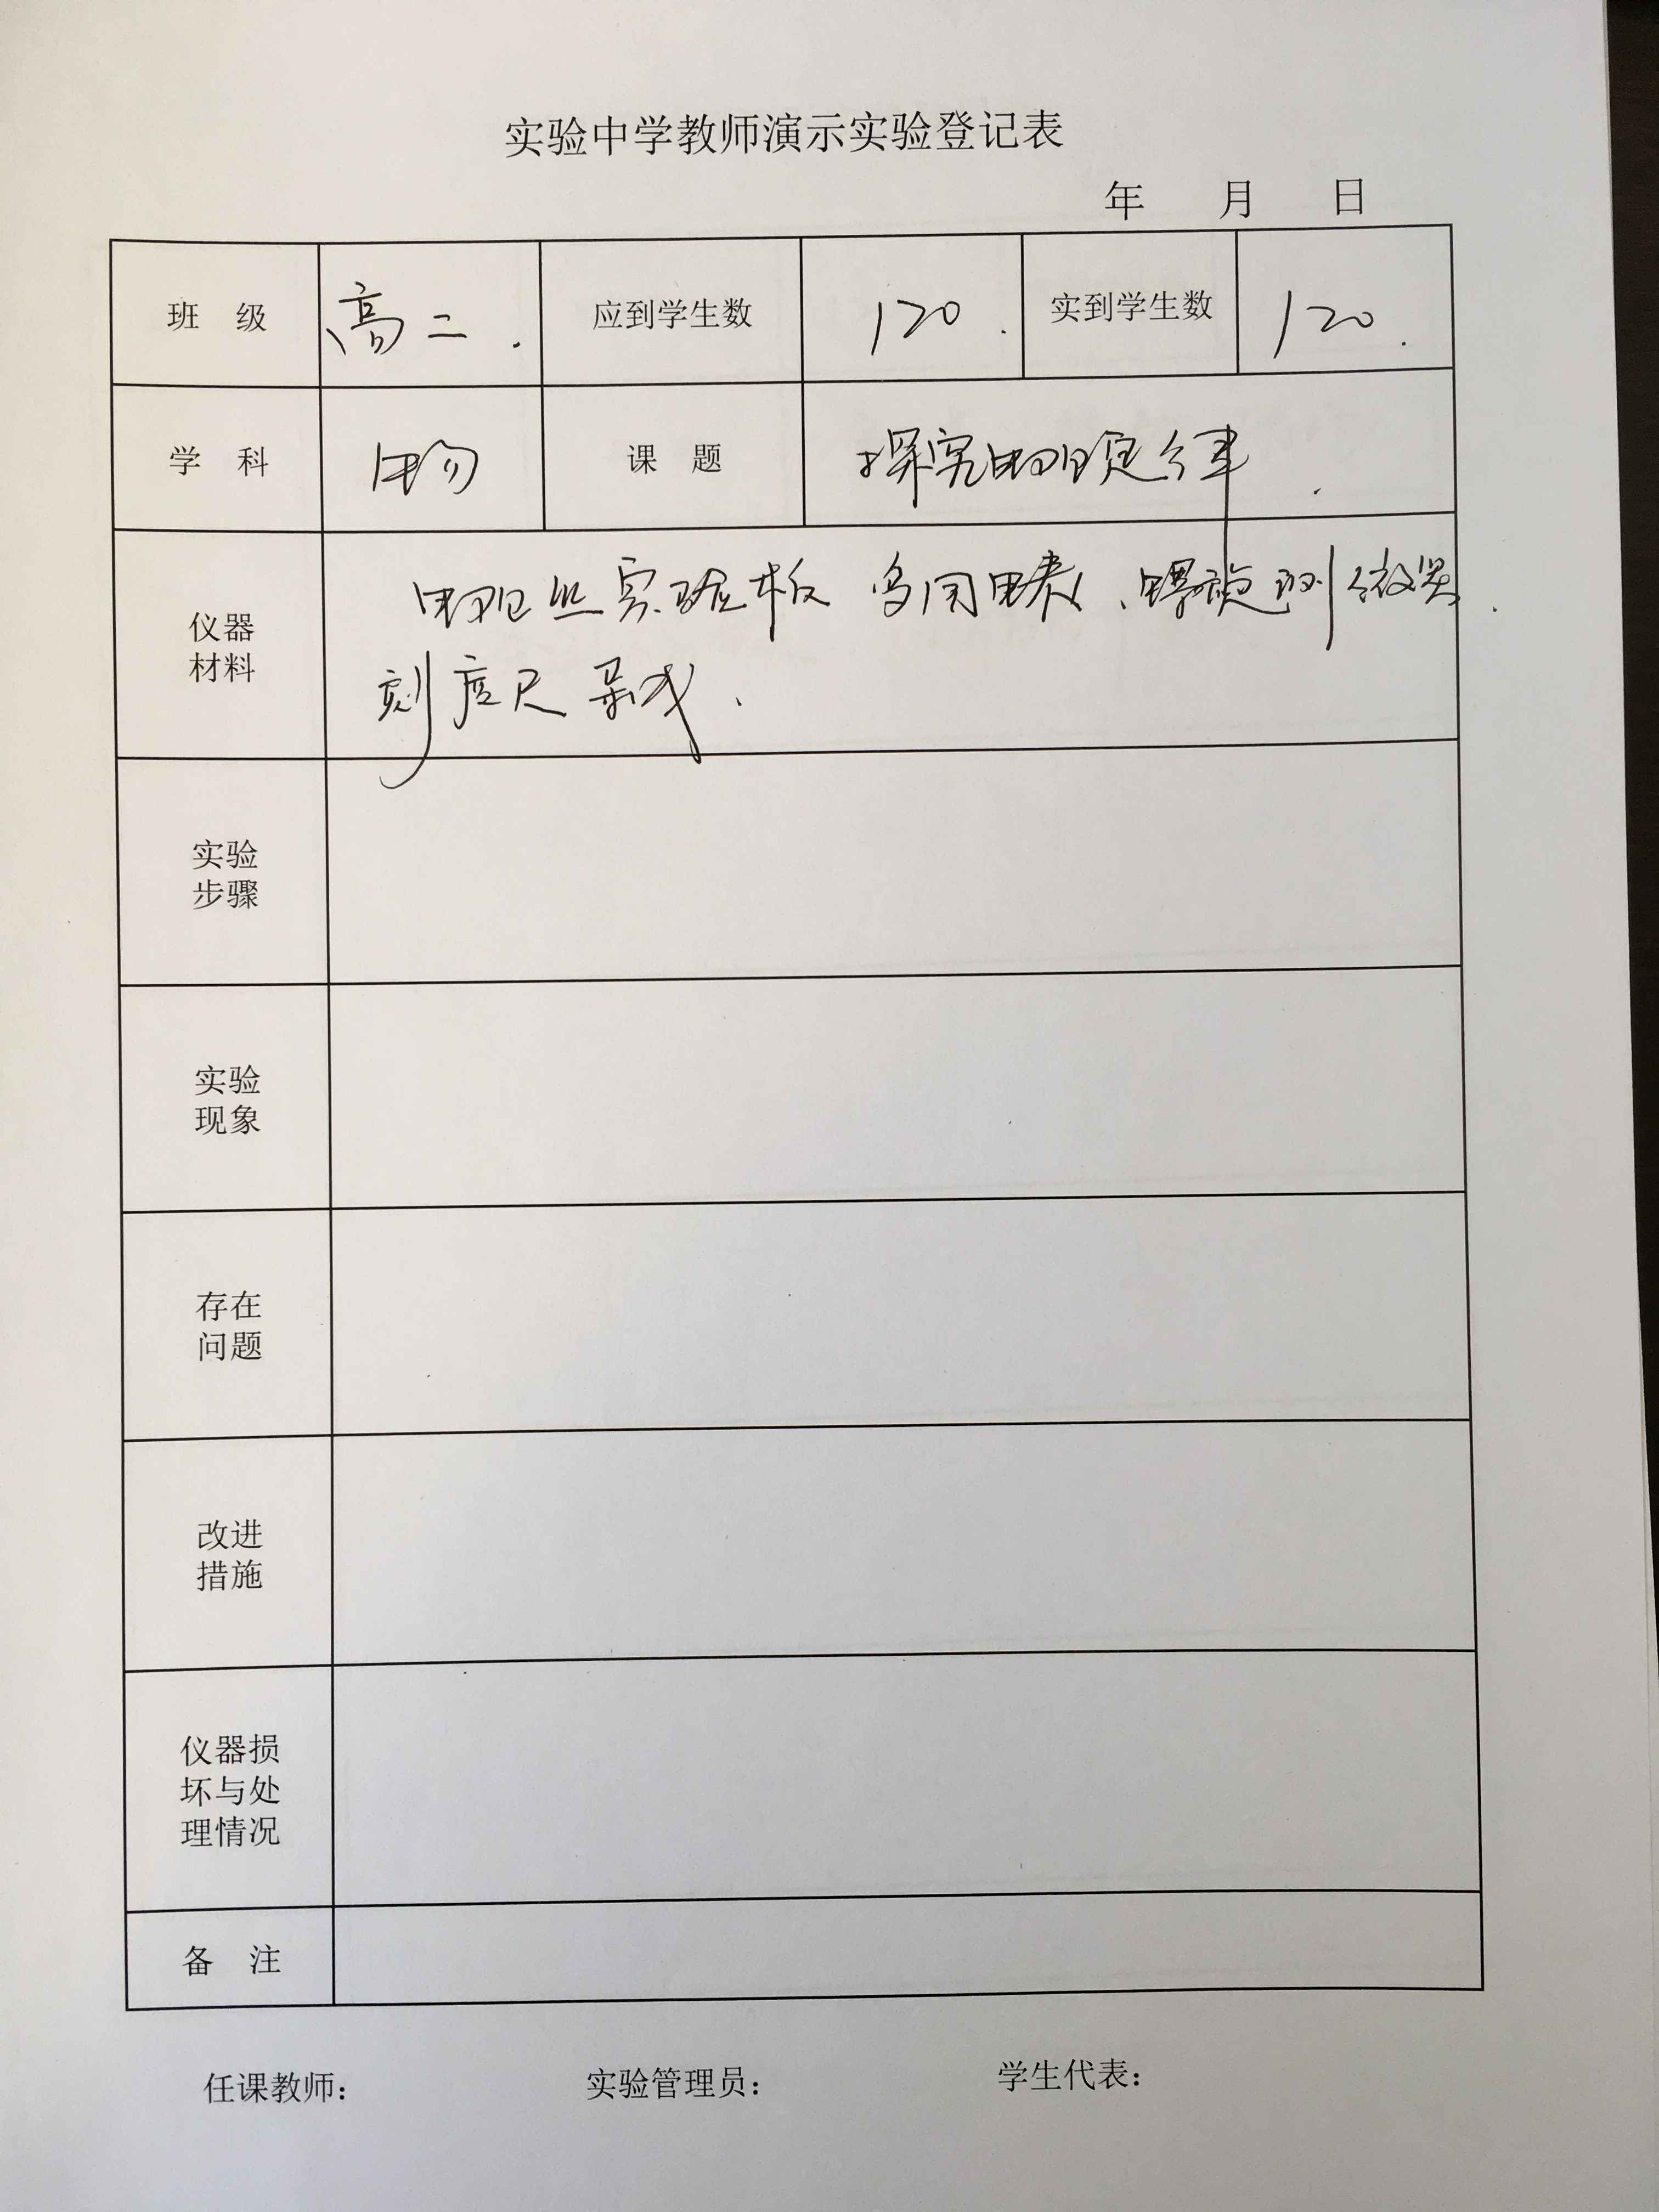 实验中学教师演示实验登记表
年 月 日
班 级 高二. 应到学生数 120. 实到学生数 120.
学 科 物 课 题 探究电阻定律.
仪器
材料
电阻丝实验板 多用电表、螺旋测微器.
刻度尺 导线.
实验
步骤
实验
现象
存在
问题
改进
措施
仪器损
坏与处
理情况
备 注
任课教师: 实验管理员: 学生代表: